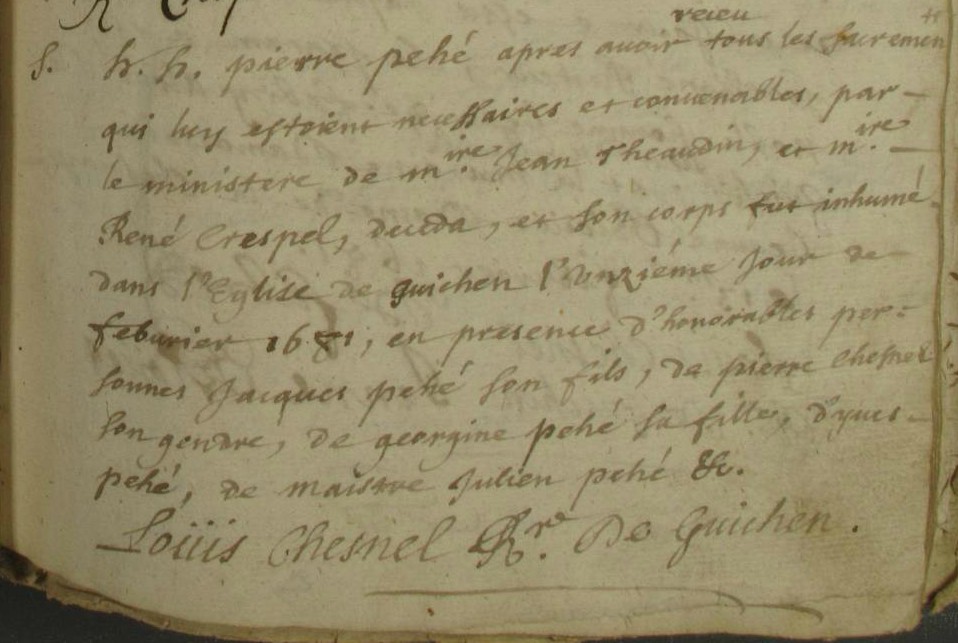 receu
S. h. h. pierre pehé apres avoir tous les sacrements
qui luy estoient necessaires et convenables, par-
le ministere de m.ire Jean Theaudin, et m.ire
René Crespel, deceda, et son corps fut inhumé
dans l'Eglise de guichen l'Unziéme Jour de
feburier 1681, en presence d'honorables per=
sonnes Jacques pehé son fils, de pierre Chesnel
son gendre, de georgine pehé sa fille, d'yues
pehé, de maistre Julien pehé &c.
Loüis Chesnel Rr. De Guichen.